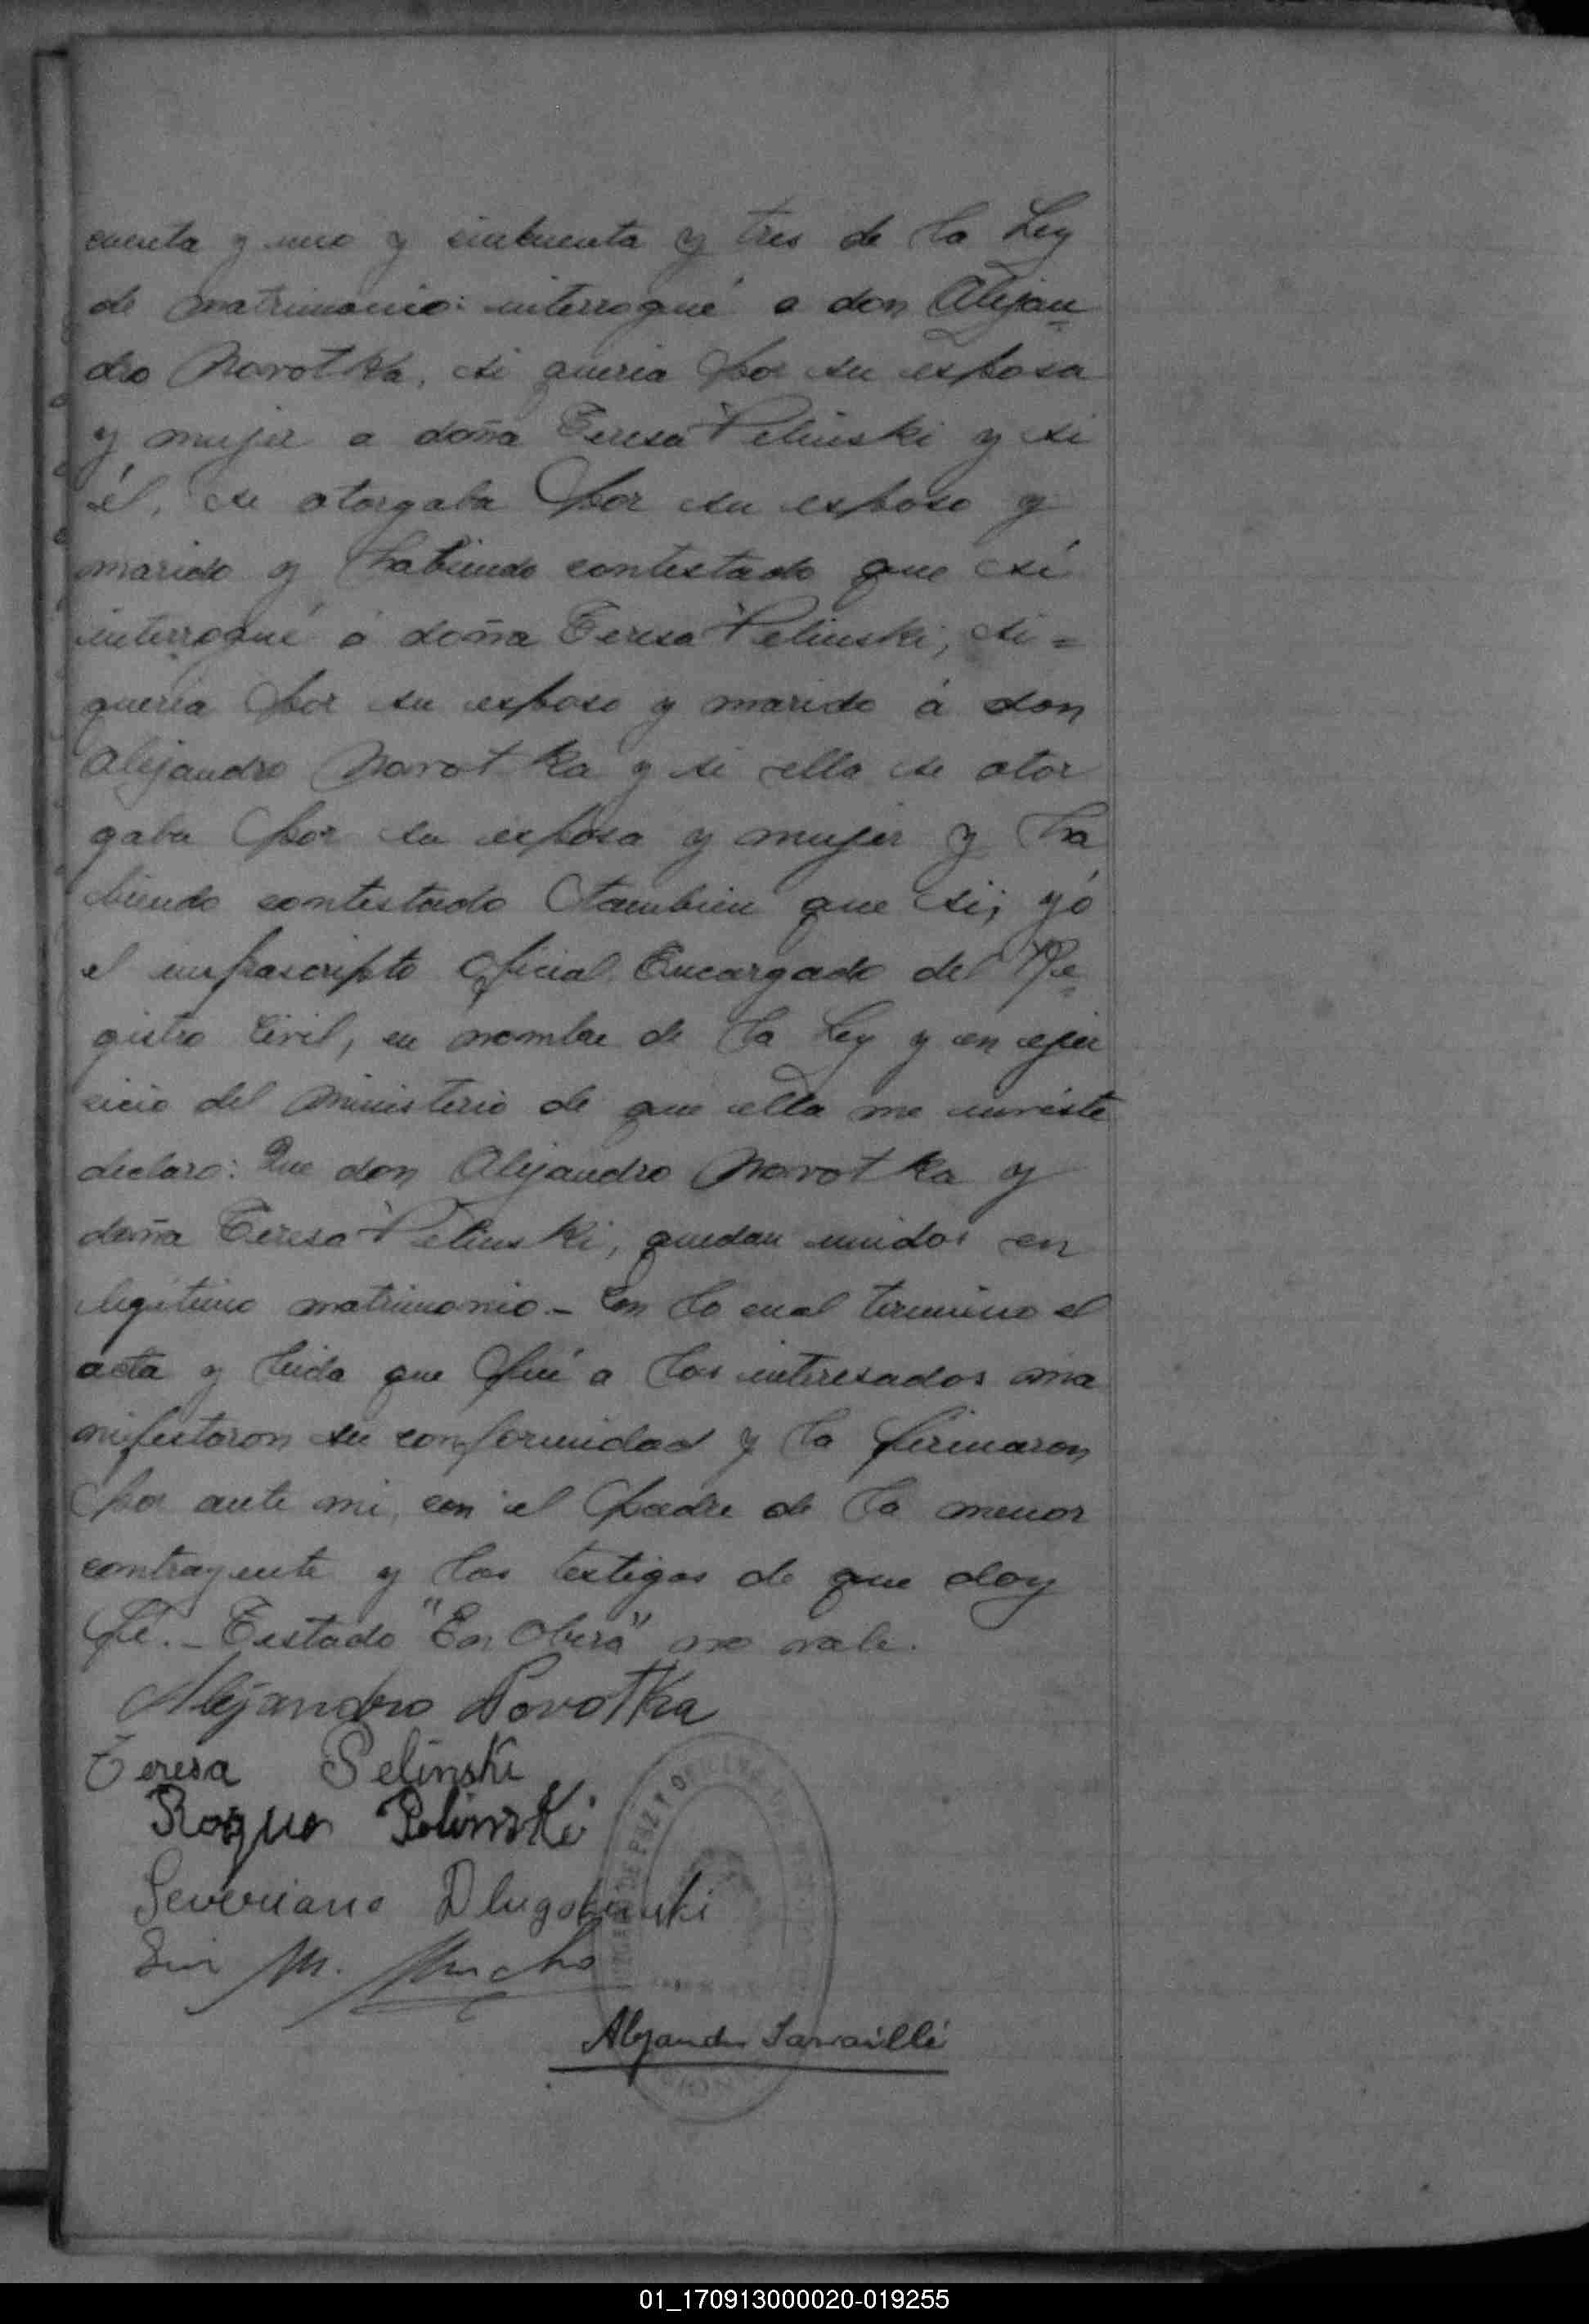 cuenta y uno y cinbuenta y tres de la Ley
de matrimonio: interrogué a don Alejan
dro Novotka, si queria por su esposa
y mujer a doña Teresa Pelinski y si
él, se otorgaba por su esposo y
marido y habiendo contestado que sí
interrogué á doña Teresa Pelinski, si =
queria por su esposo y marido á don
Alejandro Novotka y si ella se otor
gaba por su esposa y mujer y ha
biendo contestado tambien que si; yó
el infrascripto Oficial Encargado del Re
gistro Civil, en nombre de la Ley y en ejer
cicio del Ministerio de que ella me inviste
declaro: Que don Alejandro Novotka y
doña Teresa Pelinski, quedan unidos en
legitimo matrimonio.- Con lo cual termino el
acta y leida que fué a los interesados ma
nifestaron su conformidad y la firmaron
por ante mi, con el padre de la menor
contrayente y los testigos de que doy
fé.- Testado "En Oberá" no vale.
Alejandro Novotka
Teresa Pelinski
Roque Pelinski
Severiano
M.
Alejandro
DE PAZ Y